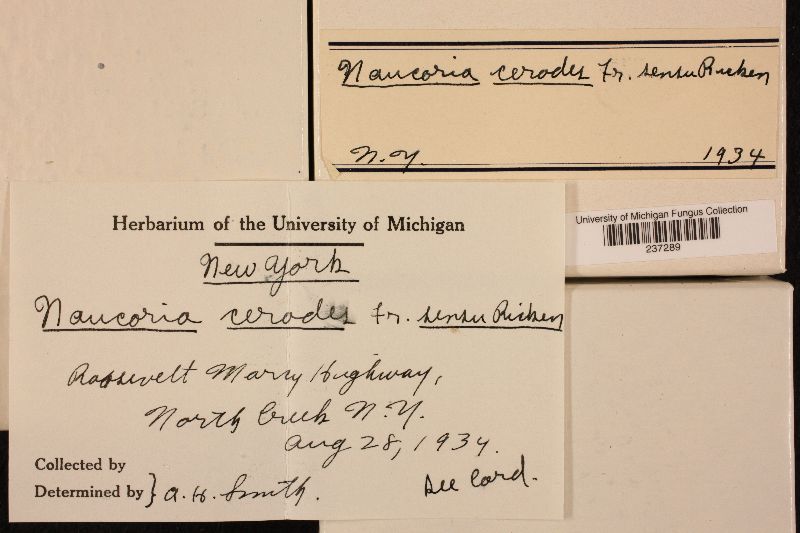 Naucoria cerodes Fr. sensu Ricken
N.Y. 1934
University of Michigan Fungus Collection
237289
Herbarium of the University of Michigan
New York
Naucoria cerodes Fr. sensu Ricken
Roosevelt Marcy Highway,
North Creek N.Y.
Aug 28, 1934.
Collected by
Determined by } A. H. Smith.
See Card.